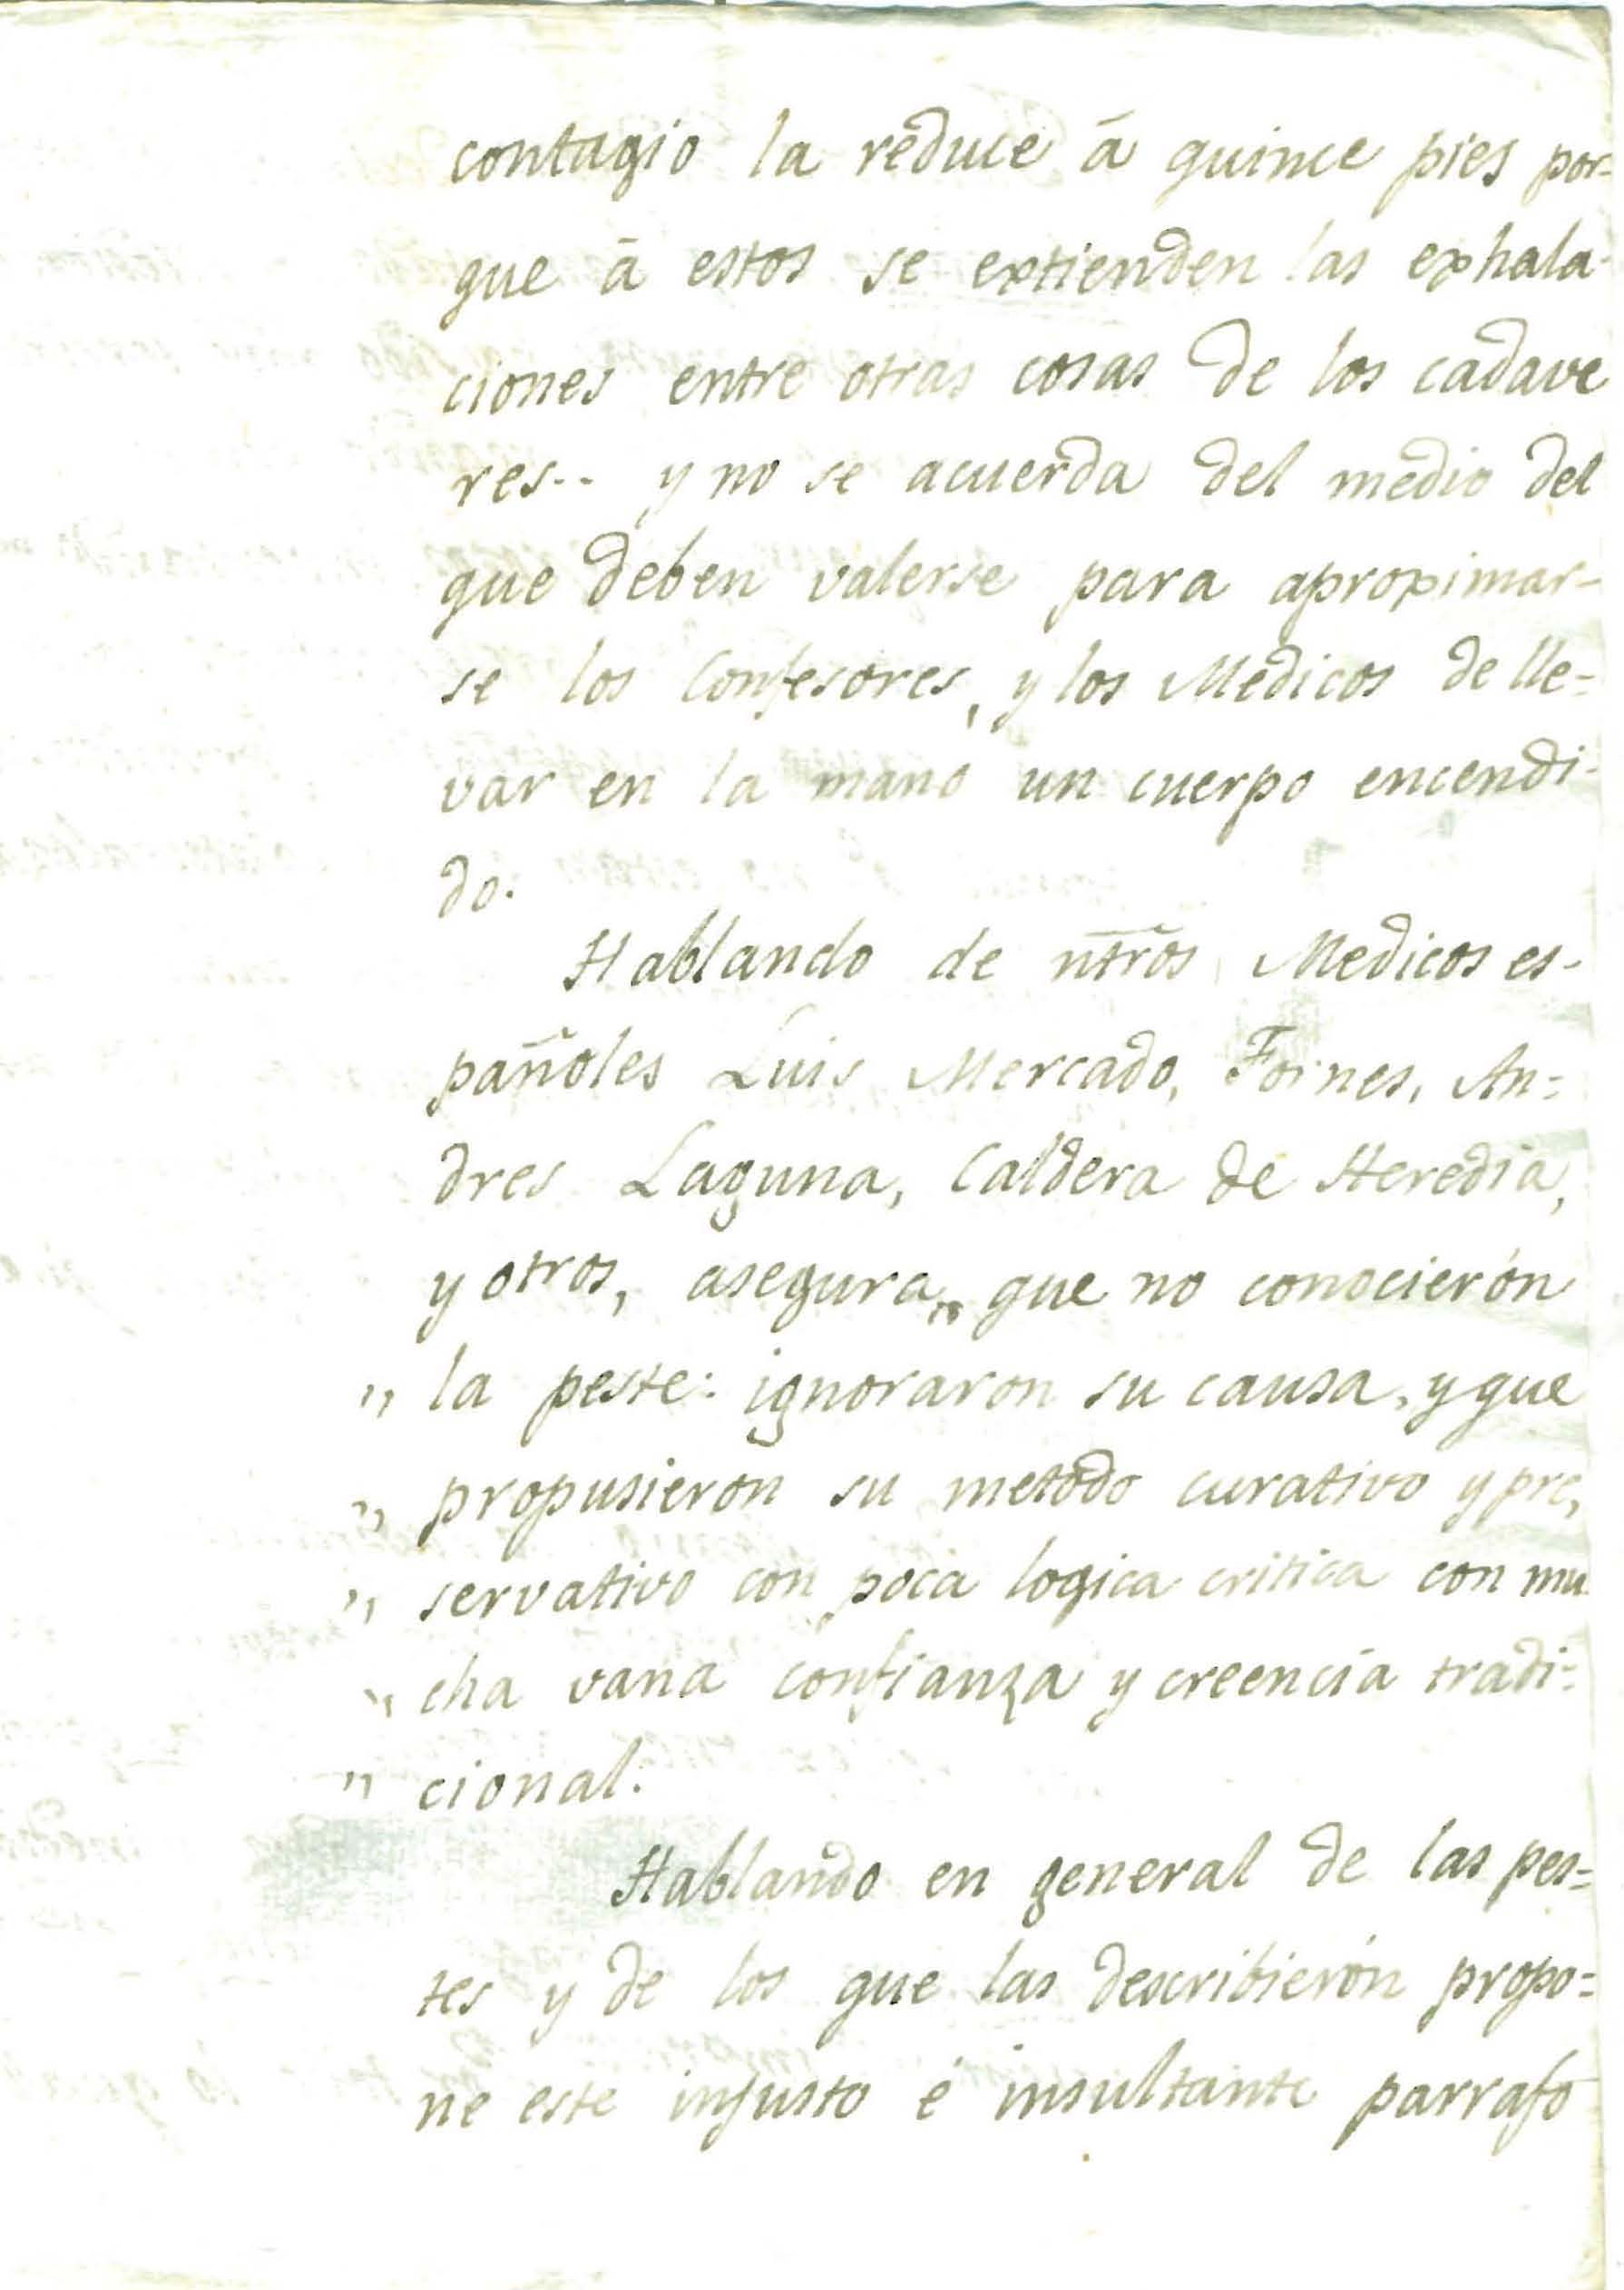 contagio la reduce á quince pies por-
que á estos se extienden las exhala-
ciones entre otras cosas de los cadave
res.. y no se acuerda del medio del
que deben valerse para aproximar-
se los Confesores, y los Medicos de lle=
var en la mano un cuerpo encendi-
do.
Hablando de ntrõs Medicos es-
pañoles Luis Mercado, Foines, An=
dres Laguna, Caldera de Heredia,
y otros, asegura „ que no conocierón
„ la peste: ignoraron su causa, y que
„ propusieron su metodo curativo y pre,
„ servativo con poca logica critica con mu
„ cha vana confianza y creencia tradi=
„ cional.
Hablando en general de las pes=
tes y de los que las describierón propo=
ne este injusto é insultante parrafo